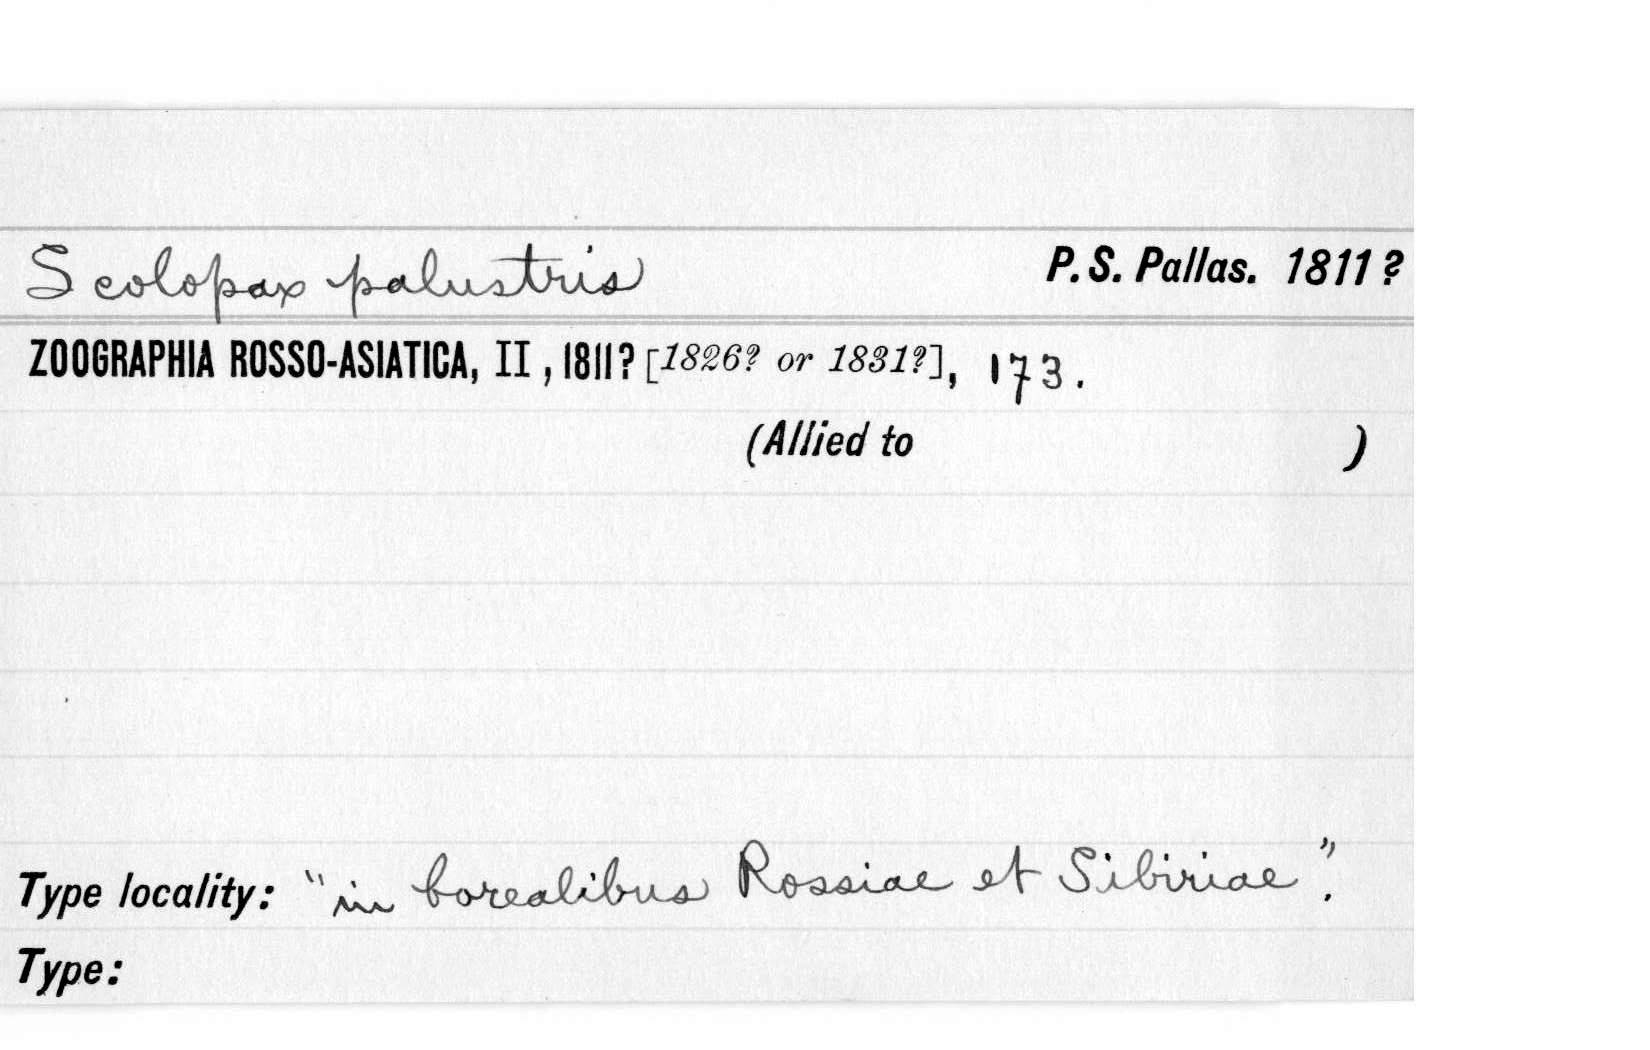 Scolopax palustris P. S. Pallas. 1811?
ZOOGRAPHIA ROSSO-ASIATICA, II, 1811? [1826? or 1831?], 173.
(Allied to )
Type locality: "in borealibus Rossiae et Sibiriae".
Type: